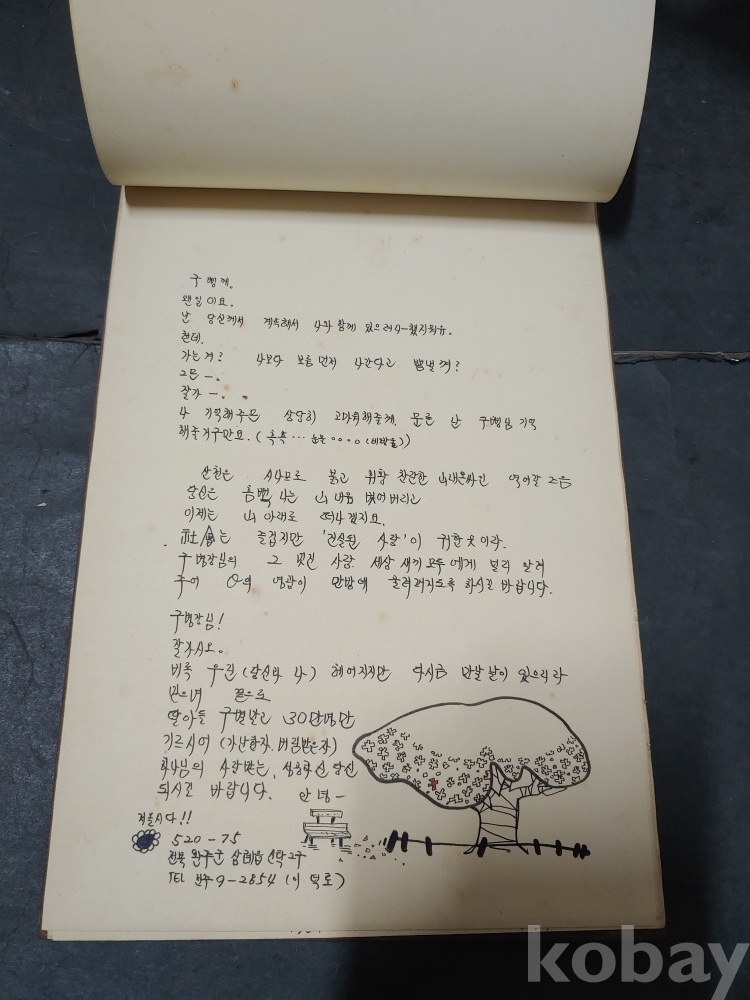 구뼁께.
왠일이요.
난 당신께서 계속해서 나와 함께 있으려나 했지뭐유.
헌데.
가는겨? 나보다 보름 먼저 나간다고 뽐낼겨?
그믄 –.
잘가 –..
나 기억해주믄 상당히 고마워해줄께. 물론 난 구병님 기억
해줄거구만요. (흑흑… 눈물 ㅇㅇㅇㅇ (네방울))
산천은 붉고 휘황 찬란한
당신은 흠뻑 나는 山내음 벗어버리고
이제는 山 아래로 떠나겠지요.
社會는 즐겁지만 '진실된 사랑'이 귀한 곳이라.
구병장님의 그 멋진 사랑 세상 새끼 모두에게 널리 알려
주어 영광이 만방에 울려퍼지도록 하시길 바랍니다.
구병장님!
잘가시오.
비록 우린 (당신과 나) 헤어지지만 다시금 만날 날이 있으리라
믿으며 끝으로
딸아들 구별말고 30만명만
기르시어 (가난한자. 버림받은자)
하나님의 사랑받는, 당신
되시길 바랍니다. 안녕 –
저올시다!!
520-75
전북 완주군 삼례읍 신탁2구
TEL 전주 9-2854 (이덕로)
kobay